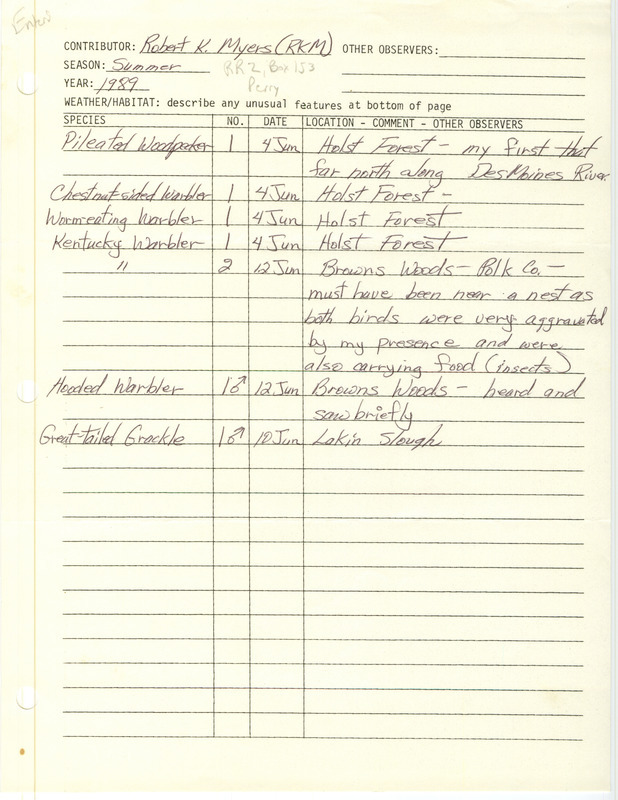 Enter
CONTRIBUTOR: Robert K. Myers (RKM) OTHER OBSERVERS:
SEASON: Summer RR 2, Box 153
YEAR: 1989 Perry
WEATHER/HABITAT: describe any unusual features at bottom of page
SPECIES NO. DATE LOCATION - COMMENT - OTHER OBSERVERS
Pileated Woodpecker 1 4 Jun Holst Forest - my first that
far north along DesMoines River.
Chestnut-sided Warbler 1 4 Jun Holst Forest -
Worm-eating Warbler 1 4 Jun Holst Forest
Kentucky Warbler 1 4 Jun Holst Forest
" 2 12 Jun Browns Woods - Polk Co. -
must have been near a nest as
both birds were very aggravated
by my presence and were
also carrying food (insects)
Hooded Warbler 1♂ 12 Jun Browns Woods - heard and
saw briefly
Great-tailed Grackle 1♂ 10 Jun Lakin Slough